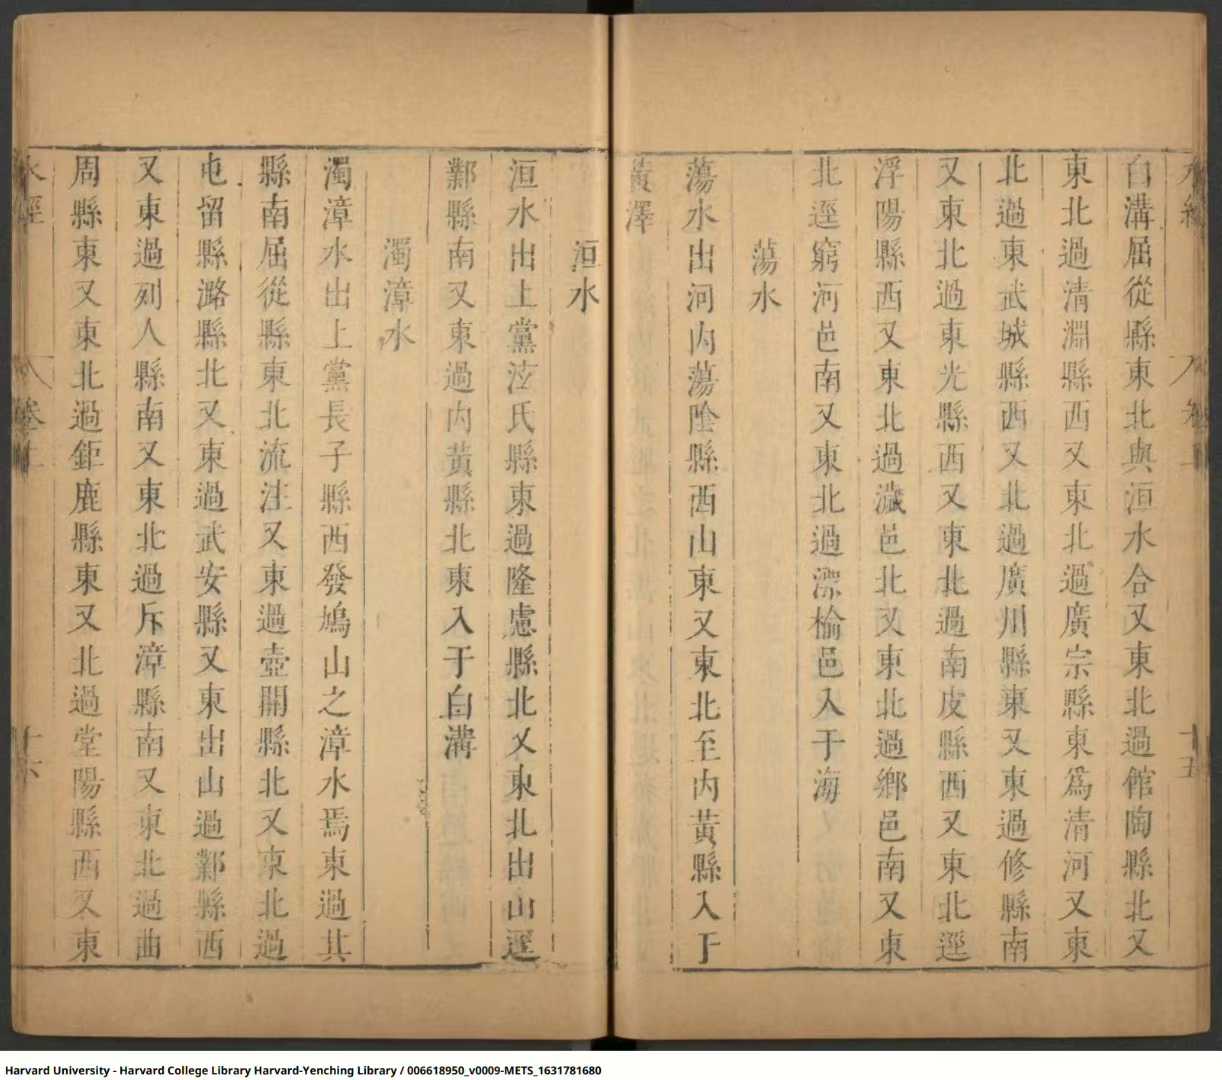 白溝屈從縣東北與洹水合又東北過館陶縣北又
東北過清淵縣西又東北過廣宗縣東爲清河又東
北過東武城縣西又北過廣川縣東又東過修縣南
又東北過東光縣西又東北過南皮縣西又東北逕
浮陽縣西又東北過濊邑北又東北過鄉邑南又東
北逕窮河邑南又東北過漂榆邑入于海
蕩水
蕩水出河內蕩陰縣西山東又東北至內黃縣入于
黃澤
洹水
洹水出上黨泫氏縣東過隆慮縣北又東北出山逕
鄴縣南又東過內黃縣北東入于白溝
濁漳水
濁漳水出上黨長子縣西發鳩山之漳水焉東過其
縣南屈從縣東北流注又東過壺開縣北又東北過
屯留縣潞縣北又東過武安縣又東出山過鄴縣西
又東過列人縣南又東北過斥漳縣南又東北過曲
周縣東又東北過鉅鹿縣東又北過堂陽縣西又東
水經
卷上
十六
Harvard University - Harvard College Library Harvard-Yenching Library / 006618950_v0009-METS_1631781680